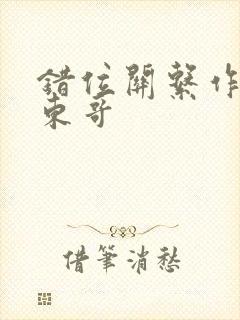 錯位關系作
東哥
借筆消愁